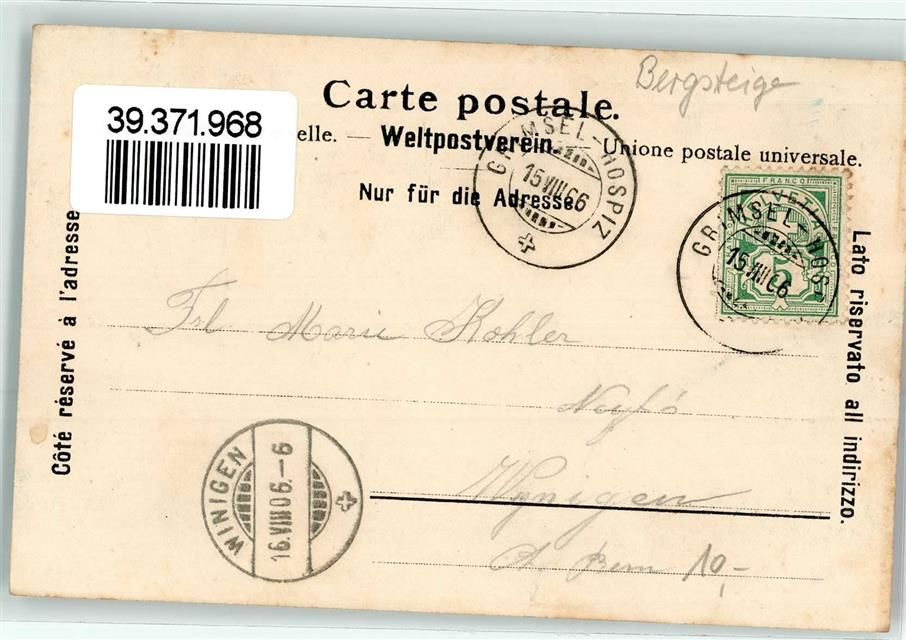 Bergsteige
Carte postale.
39.371.968
elle. — Weltpostverein. — Unione postale universale.
Nur für die Adresse
Côté réservé à l'adresse
Lato riservato all indirizzo.
GRIMSEL-HOSPIZ
15 VIII 06
FRANCO
HELVETIA
5
GRIMSEL-HOSP
15 VIII 06
Frl Marie Kohler
Wynigen
Kt. Bern 10,-
WINIGEN
16.VIII 06.-6